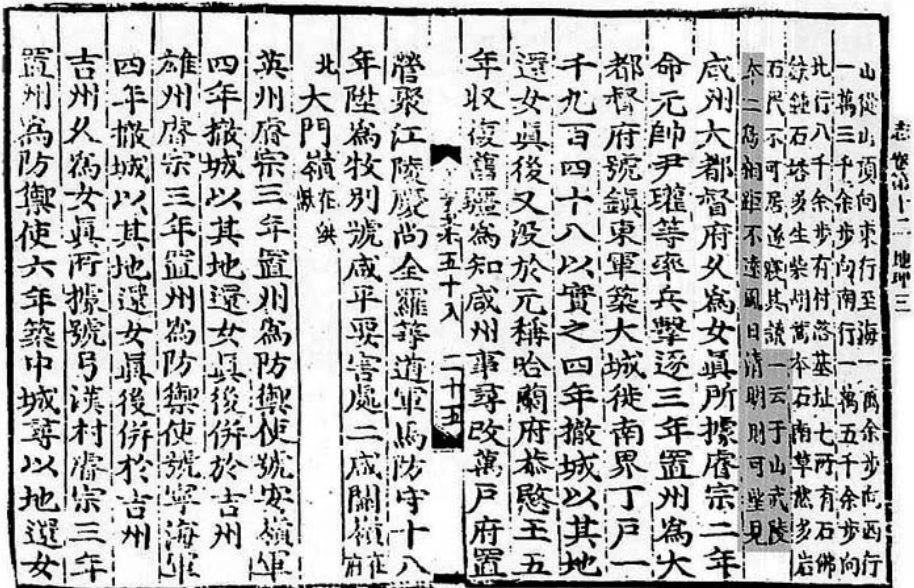 志 卷第十二 地理三
山從山頂向東行至海一萬余步向西行
一萬三千余步向南行一萬五千余步向
北行八千余步有村落基址七所有石佛
鉄鍾石塔多生柴胡蒿本石南草然多岩
石民不可居遂寢其議一云于山武陵
本二島相距不遠風日清明則可望見
咸州大都督府久爲女眞所據睿宗二年
命元帥尹瓘等率兵擊逐三年置州爲大
都督府號鎭東軍築大城徙南界丁戶一
千九百四十八以實之四年撤城以其地
還女眞後又没於元稱哈蘭府恭愍王五
年收復舊疆爲知咸州事尋改萬戶府置
五十八 二十五
營聚江陵慶尚全羅等道軍馬防守十八
年陞爲牧別號咸平要害處二咸關嶺在府
北大門嶺在洪獻
英州睿宗三年置州爲防禦使號安嶺軍
四年撤城以其地還女眞後併於吉州
雄州睿宗三年置州爲防禦使號寧海軍
四年撤城以其地還女眞後併於吉州
吉州久爲女眞所據號弓漢村睿宗三年
置州爲防禦使六年築中城尋以地還女